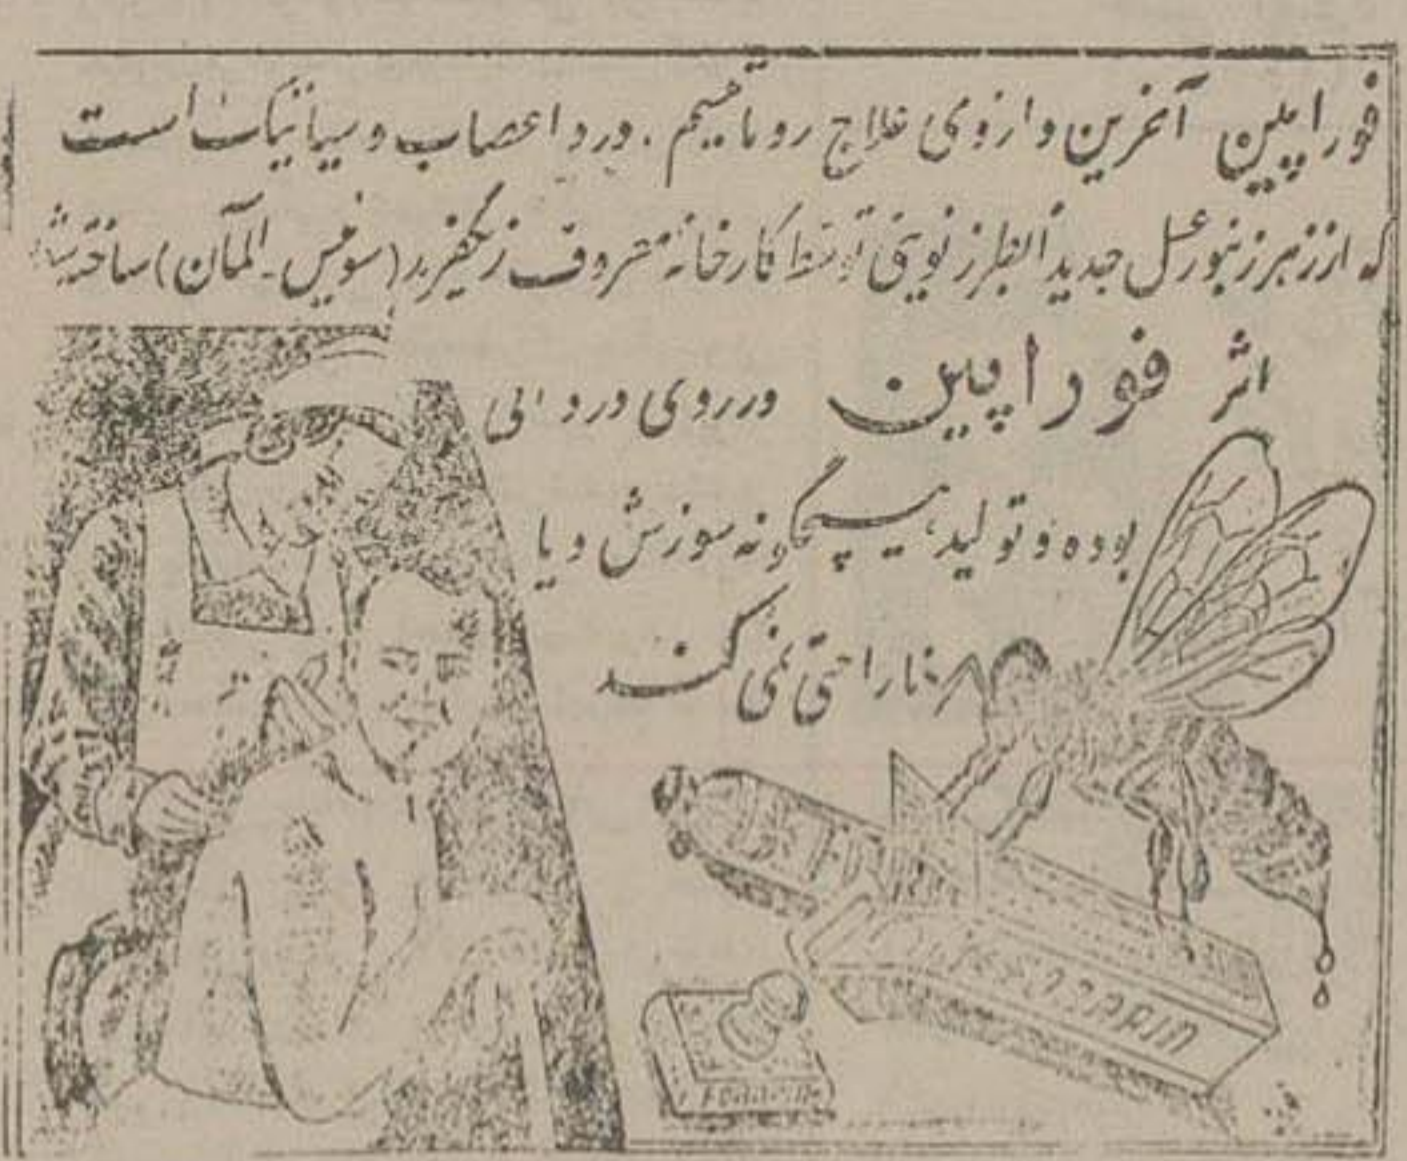 فوراپین آخرین داروی علاج روماتیسم . درد اعصاب و سیاتیک است
که از زهر زنبور عسل جدیداً بطرز نوینی توسط کارخانه معروف (سویس - آلمان) ساخته شده
اثر فوراپین در روی درد آنی
بوده و تولید هیچگونه سوزش و یا
ناراحتی نمی کند
FORAPIN